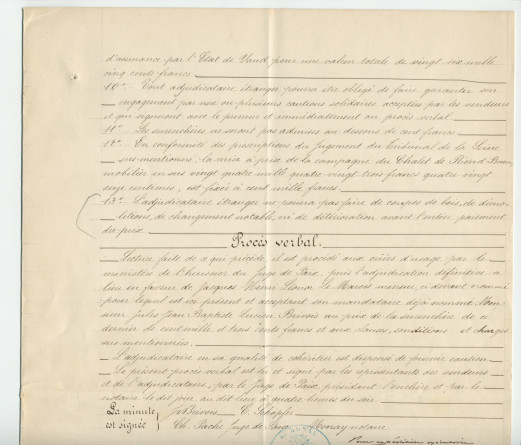 d'assurance par l'Etat de Vaud pour une valeur totale de vingt six mille
cinq cents francs.
10° Tout adjudicataire étranger pourra être obligé de faire garantir son
engagement par une ou plusieurs cautions solidaires acceptées par les vendeurs
et qui signeront avec le premier et immédiatement au procès verbal.
11° Les surenchères ne seront pas admises au dessous de cent francs.
12° En conformité des prescriptions du Jugement du tribunal de la Seine
sus-mentionné, la mise à prix de la campagne du Chalet de Riond-Bosson,
mobilier en sus vingt quatre mille quatre vingt trois francs quatre vingt
seize centimes, est fixée à cent mille francs.
13° L'adjudicataire étranger ne pourra pas faire de coupes de bois, de démo-
litions, de changement notable, ni de détérioration avant l'entier paiement
du prix.
Procès verbal.
Lecture faite de ce qui précède, il est procédé aux criées d'usage par le
ministère de l'huissier du Juge de Paix, puis l'adjudication définitive a
lieu en faveur de Jacques Henri Léonor Le Marois mineur, ci devant nommé
pour lequel est ici présent et acceptant son mandataire déjà nommé Mon-
sieur Jules Jean Baptiste Lucien au prix de la surenchère de ce
dernier de cent mille et trois cents francs et aux clauses, conditions et charges
sus-mentionnées.
L'adjudicataire en sa qualité de cohéritier est dispensé de fournir caution.
Le présent procès verbal est lu et signé par les représentants des vendeurs
et de l'adjudicataire, par le Juge de Paix, présidant l'enchère et par le
notaire le dit jour, au dit lieu à quatre heures du soir.
La minute
est signée
Ch. Pache Juge de Paix. Monay notaire
Pour expédition